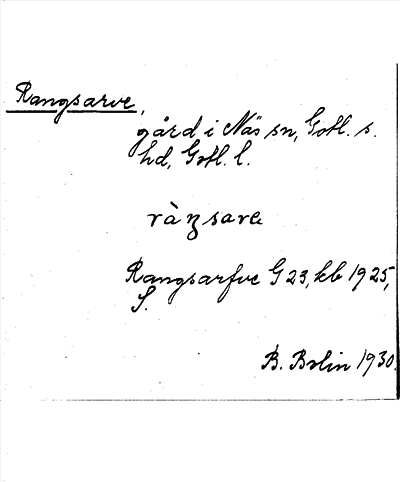 Rangsarve,
gård i Näs sn, Gotl. s.
hd, Gotl. l.
ràŋsarvε
Rangsarfve G 23, kb 1925,
S.
B. Bolin 1930.